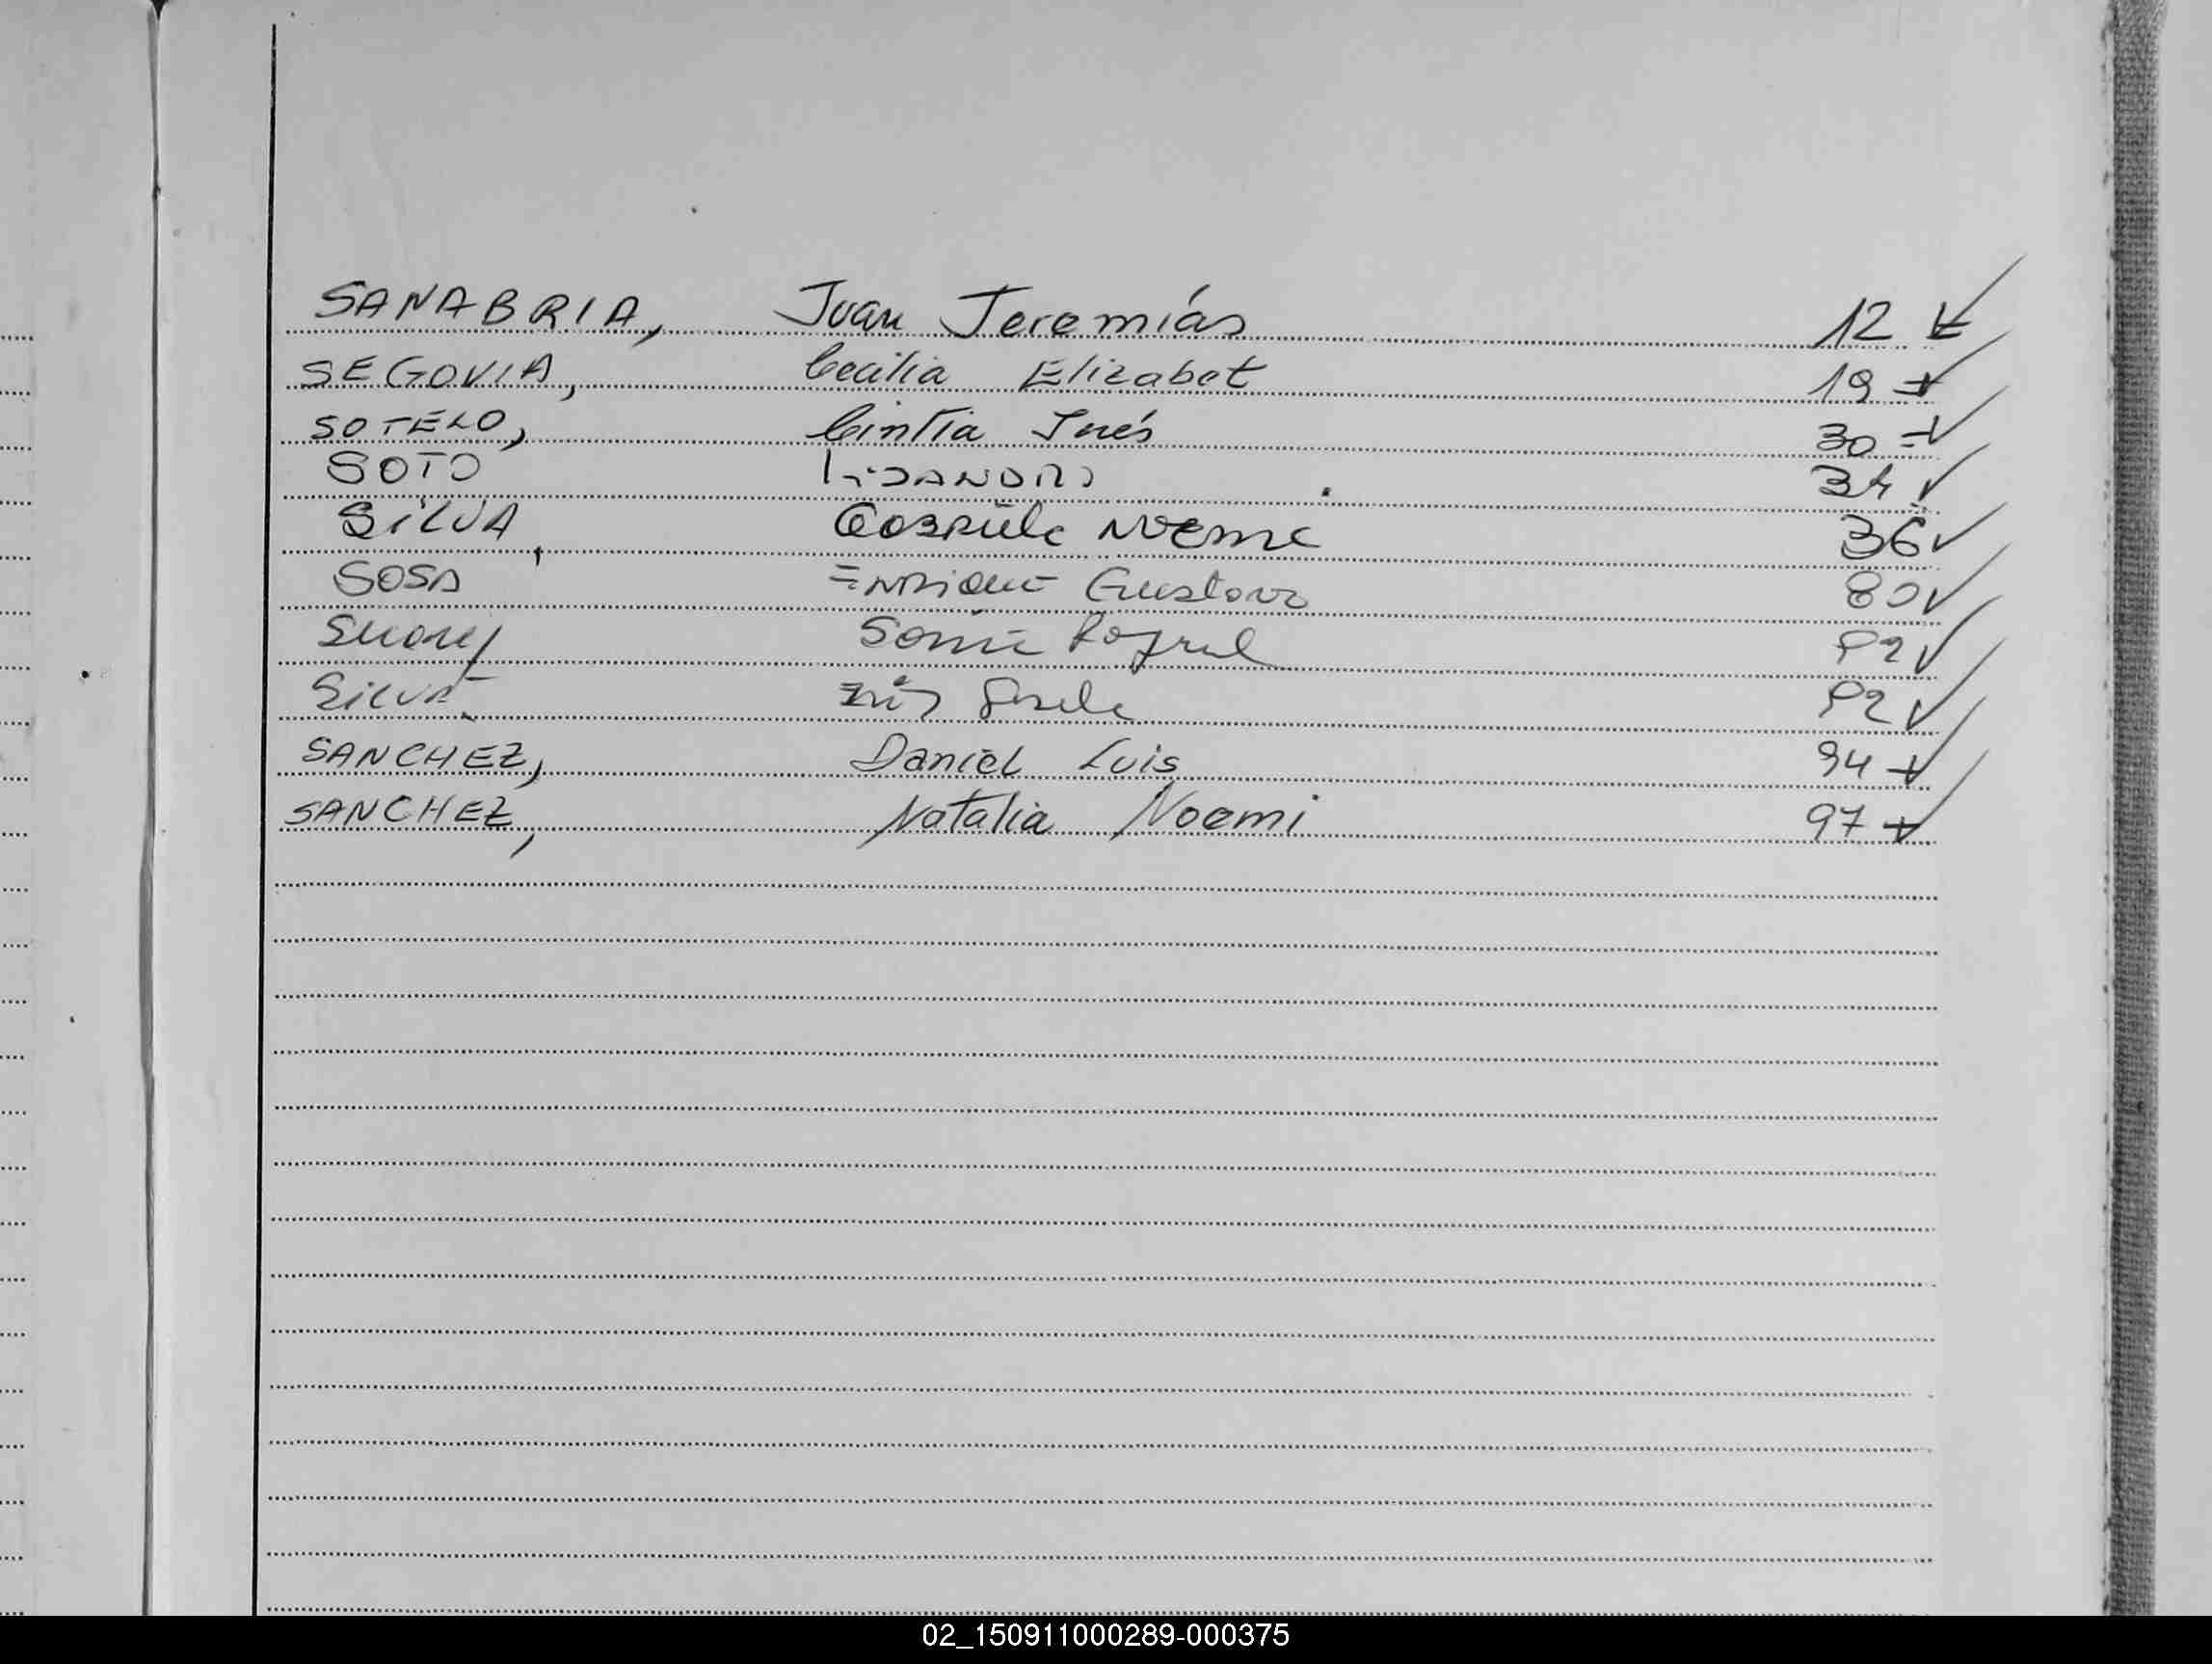 SANABRIA, Juan Jeremías 12
SEGOVIA, Cecilia Elizabet 19
SOTELO, Cintia Inés 30
SOTO LISANDRO 34
SILVA, Gabriela Noemi 36
SOSA Enrique Gustavo 80
Suarez Sonia Raquel 82
Silva Gisela 82
SANCHEZ, Daniel Luis 94
SANCHEZ, Natalia Noemi 97
02_150911000289-000375